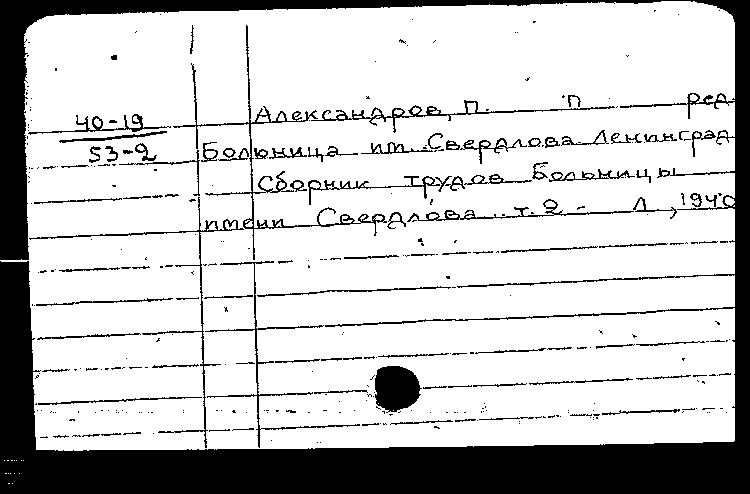 40-19
53-2
Александров, П. П ред
Больница им. Свердлова Ленинград
Сборник трудов Больницы
имени Свердлова. т. 2 - Л, 1940